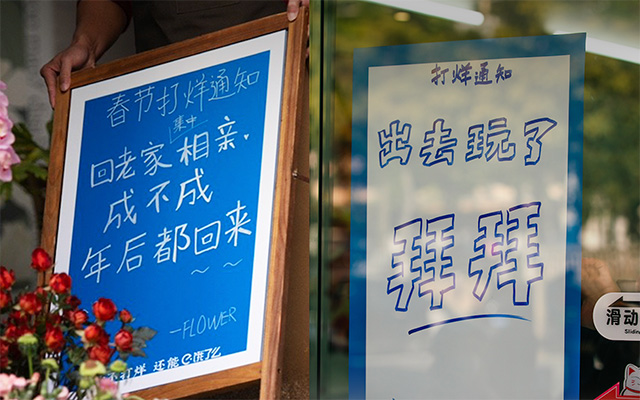 春节打烊通知
集中
回老家相亲.
成不成
年后都回来
~ ~
—FLOWER
打烊 还能饿了么
打烊通知
出去玩了
拜拜
滑动
Slidin